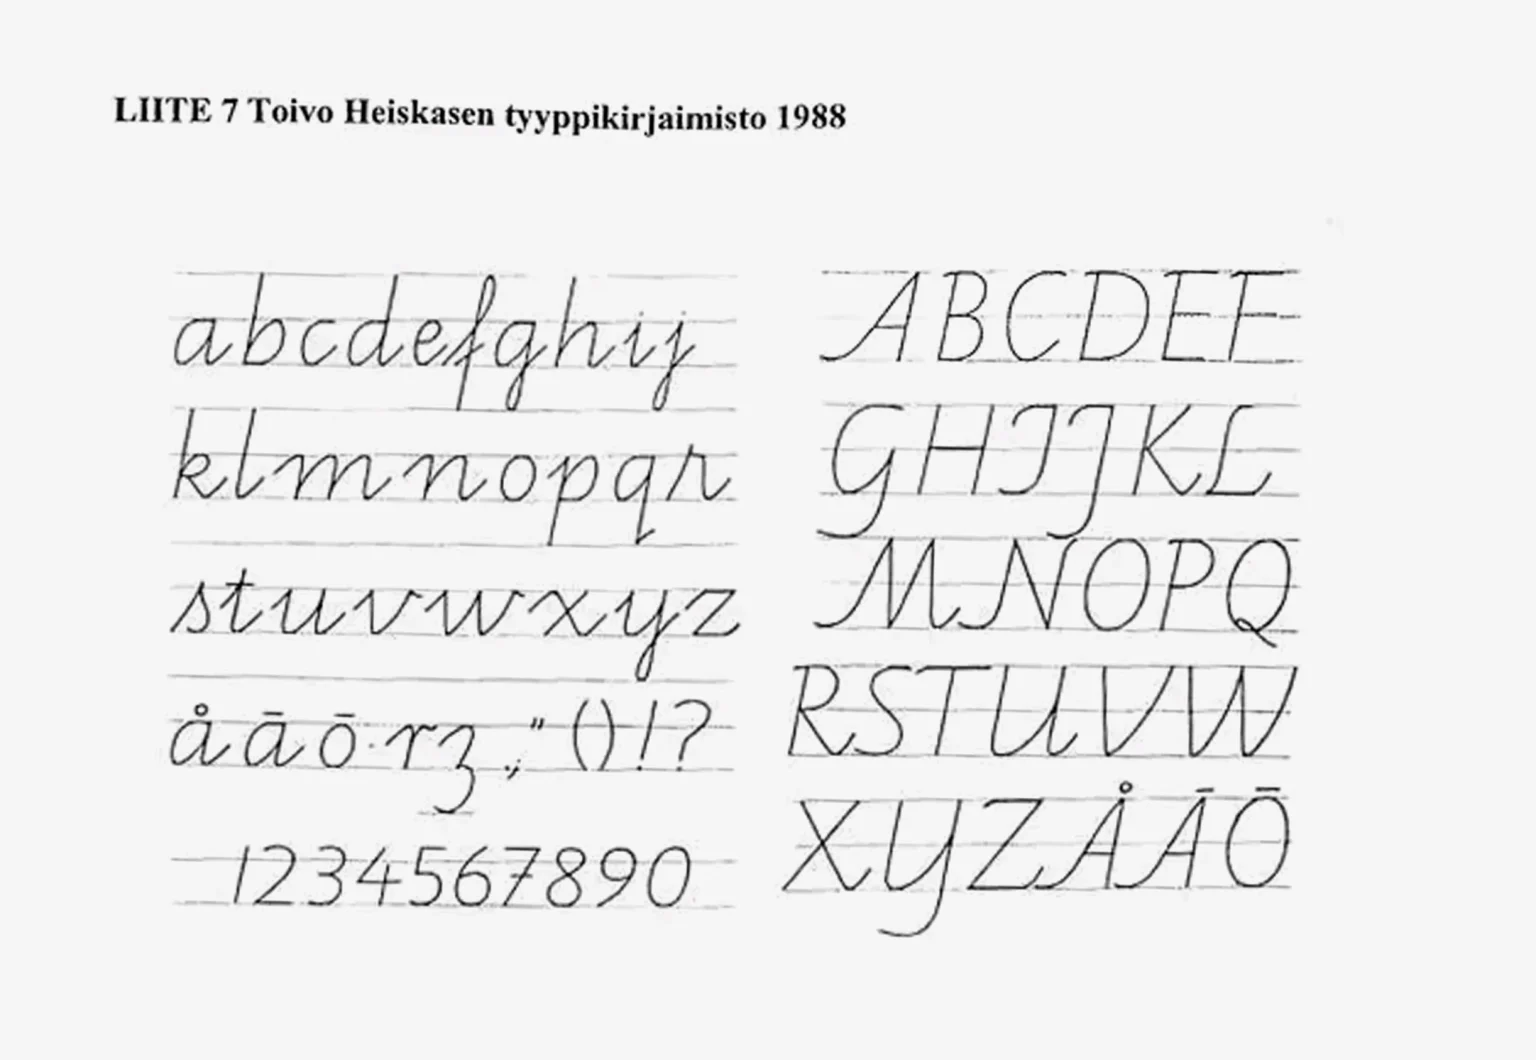 LIITE 7 Toivo Heiskasen tyyppikirjaimisto 1988
abcdefghij
klmnopqr
stuvwxyz
åāō rz.,;" ()!?
1234567890
ABCDEF
GHIJKL
MNOPQ
RSTUVW
XYZÅĀŌ